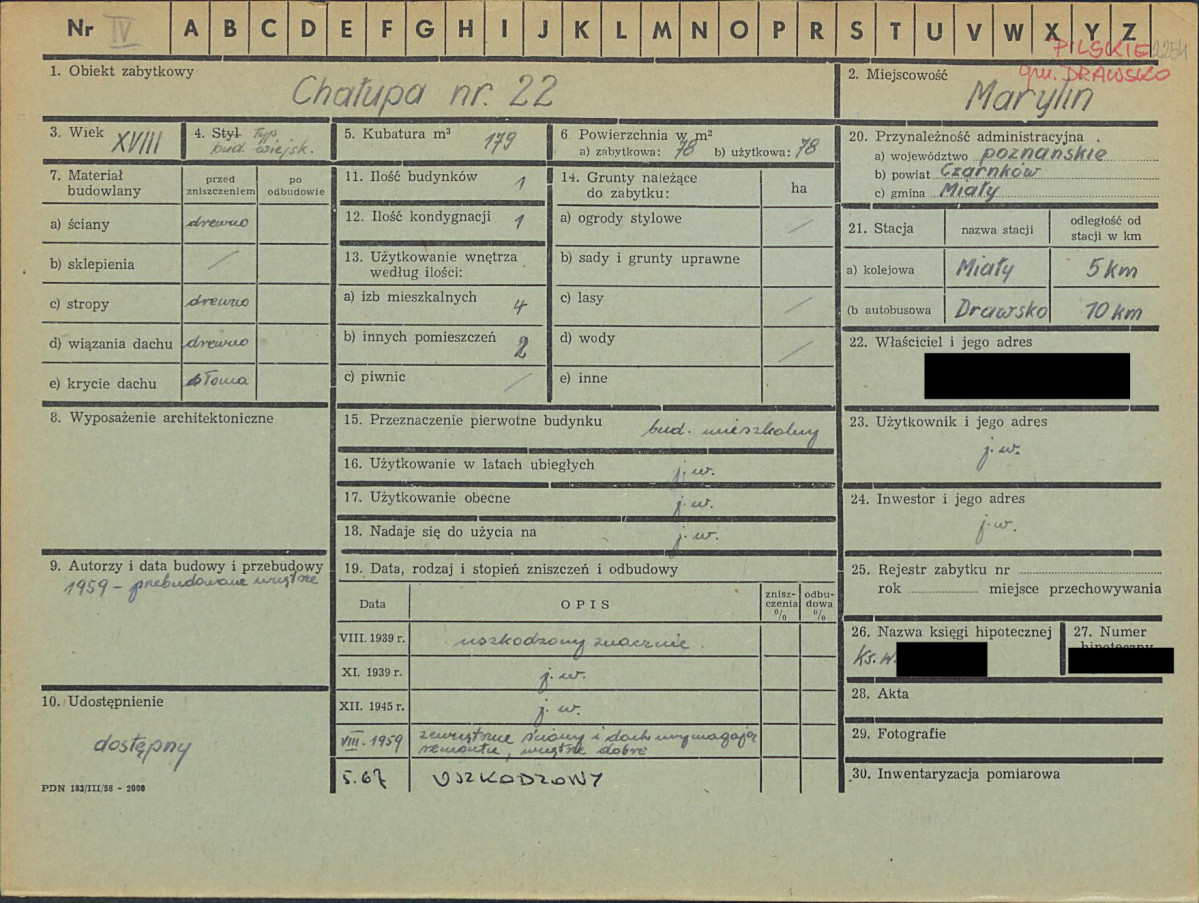 Nr IV A B C D E F G H I J K L M N O P R S T U V W X Y Z
PILSKIE 2254
gm. DRAWSKO
1. Obiekt zabytkowy
Chałupa nr. 22
2. Miejscowość
Marylin
3. Wiek XVIII
4. Styl typ.
bud. wiejsk.
5. Kubatura m³ 179
6. Powierzchnia w m²
a) zabytkowa: 78 b) użytkowa: 78
7. Materiał budowlany
przed zniszczeniem
po odbudowie
a) ściany drewno
b) sklepienia /
c) stropy drewno
d) wiązania dachu drewno
e) krycie dachu słoma
8. Wyposażenie architektoniczne
9. Autorzy i data budowy i przebudowy
1959 – przebudowane wnętrze
10. Udostępnienie
dostępny
PDN 183/III/58 - 2000
11. Ilość budynków 1
12. Ilość kondygnacji 1
13. Użytkowanie wnętrza
według ilości:
a) izb mieszkalnych 4
b) innych pomieszczeń 2
c) piwnic /
14. Grunty należące
do zabytku:
ha
a) ogrody stylowe /
b) sady i grunty uprawne
c) lasy /
d) wody /
e) inne
15. Przeznaczenie pierwotne budynku
bud. mieszkalny
16. Użytkowanie w latach ubiegłych j. w.
17. Użytkowanie obecne j. w.
18. Nadaje się do użycia na j. w.
19. Data, rodzaj i stopień zniszczeń i odbudowy
Data
OPIS
znisz-
czenia
%
odbu-
dowa
%
VIII. 1939 r. uszkodzony znacznie
XI. 1939 r. j. w.
XII. 1945 r. j. w.
VIII. 1959 zewnętrzne ściany i dach wymagają
remontu, wnętrze dobre
5.67 USZKODZONY
20. Przynależność administracyjna
a) województwo poznańskie
b) powiat Czarnków
c) gmina Miały
21. Stacja
nazwa stacji
odległość od
stacji w km
a) kolejowa Miały 5 km
(b autobusowa Drawsko 10 km
22. Właściciel i jego adres
23. Użytkownik i jego adres
j. w.
24. Inwestor i jego adres
j. w.
25. Rejestr zabytku nr
rok miejsce przechowywania
26. Nazwa księgi hipotecznej
Ks. w.
27. Numer
hipoteczny
28. Akta
29. Fotografie
30. Inwentaryzacja pomiarowa